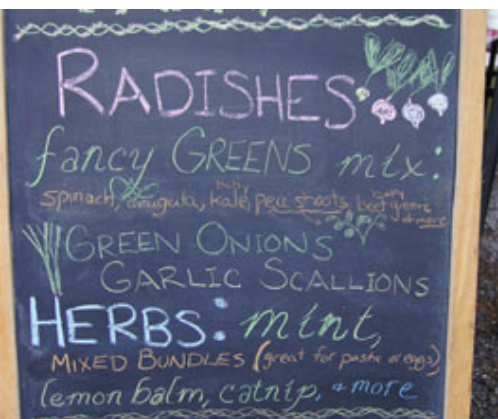 RADISHES
fancy GREENS mix:
spinach, arugula, baby kale, pea shoots, baby beet greens
& more
GREEN ONIONS
GARLIC SCALLIONS
HERBS: mint,
MIXED BUNDLES (great for pasta or eggs)
lemon balm, catnip, & more